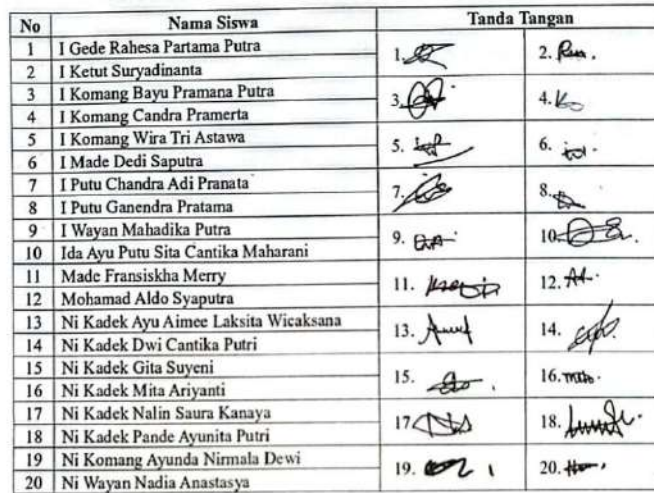 No Nama Siswa Tanda Tangan
1 I Gede Rahesa Partama Putra 1. 2.
2 I Ketut Suryadinanta
3 I Komang Bayu Pramana Putra 3. 4.
4 I Komang Candra Pramerta
5 I Komang Wira Tri Astawa 5. 6.
6 I Made Dedi Saputra
7 I Putu Chandra Adi Pranata 7. 8.
8 I Putu Ganendra Pratama
9 I Wayan Mahadika Putra 9. 10.
10 Ida Ayu Putu Sita Cantika Maharani
11 Made Fransiskha Merry 11. 12.
12 Mohamad Aldo Syaputra
13 Ni Kadek Ayu Aimee Laksita Wicaksana 13. 14.
14 Ni Kadek Dwi Cantika Putri
15 Ni Kadek Gita Suyeni 15. 16.
16 Ni Kadek Mita Ariyanti
17 Ni Kadek Nalin Saura Kanaya 17. 18.
18 Ni Kadek Pande Ayunita Putri
19 Ni Komang Ayunda Nirmala Dewi 19. 20.
20 Ni Wayan Nadia Anastasya